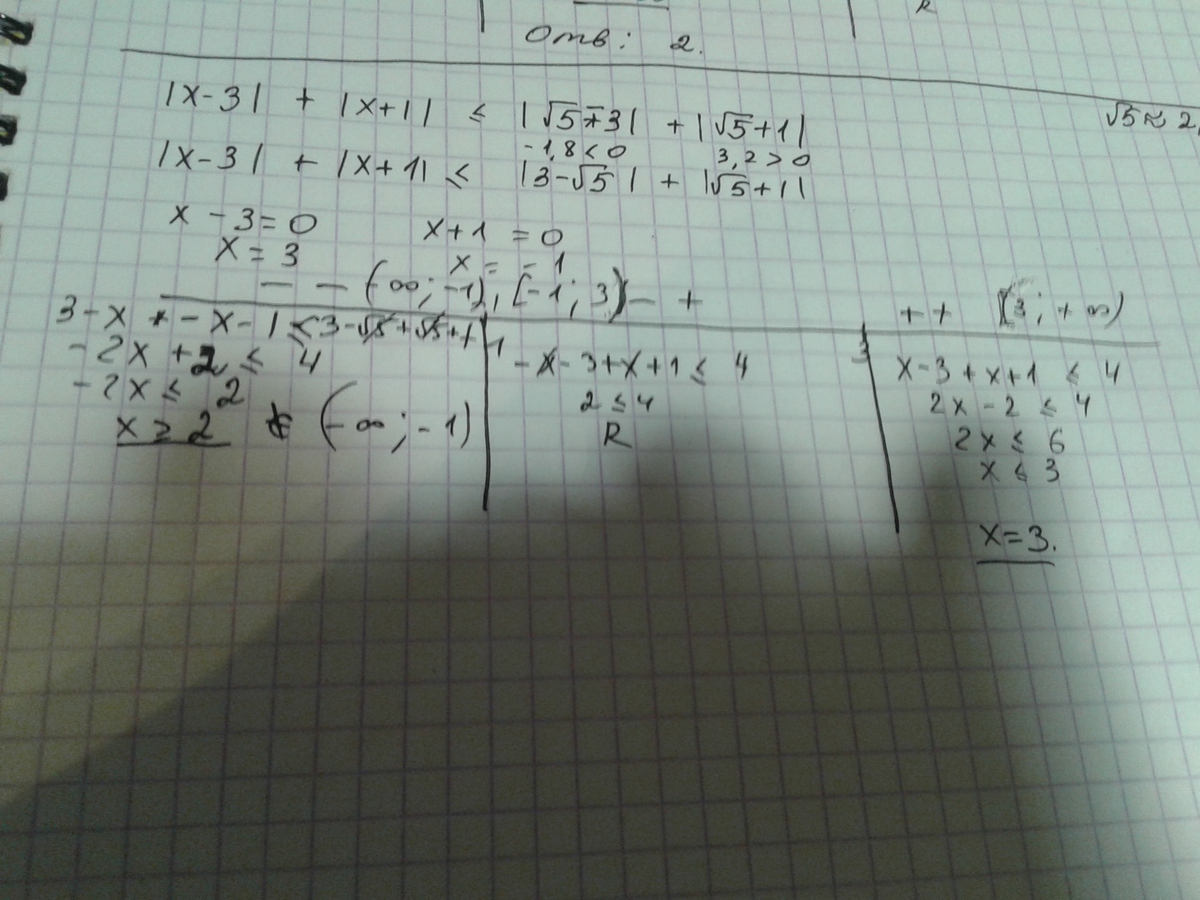 Отв: 2.
|x-3| + |x+1| ≤ |√5-3| + |√5+1|
√5 ≈ 2,
-1,8 < 0 3,2 > 0
|x-3| + |x+1| ≤ |3-√5| + |√5+1|
x - 3 = 0 x+1 = 0
x = 3 x = -1
- - (-∞; -1), [-1; 3) - +
+ + [3; +∞)
3-x - x - 1 ≤ 3-√5+√5+1
-2x + 2 ≤ 4
-2x ≤ 2
x ≥ 2 ∉ (-∞; -1)
-1
-x-3+x+1 ≤ 4
2 ≤ 4
R
3
x-3+x+1 ≤ 4
2x - 2 ≤ 4
2x ≤ 6
x ≤ 3
x=3.